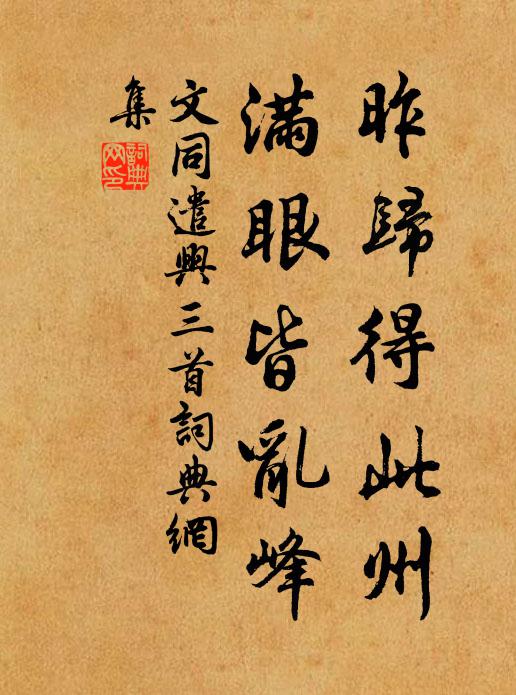 昨歸得此州
滿眼皆亂峰
文同遣興三首詞典網
集
詞典
网印